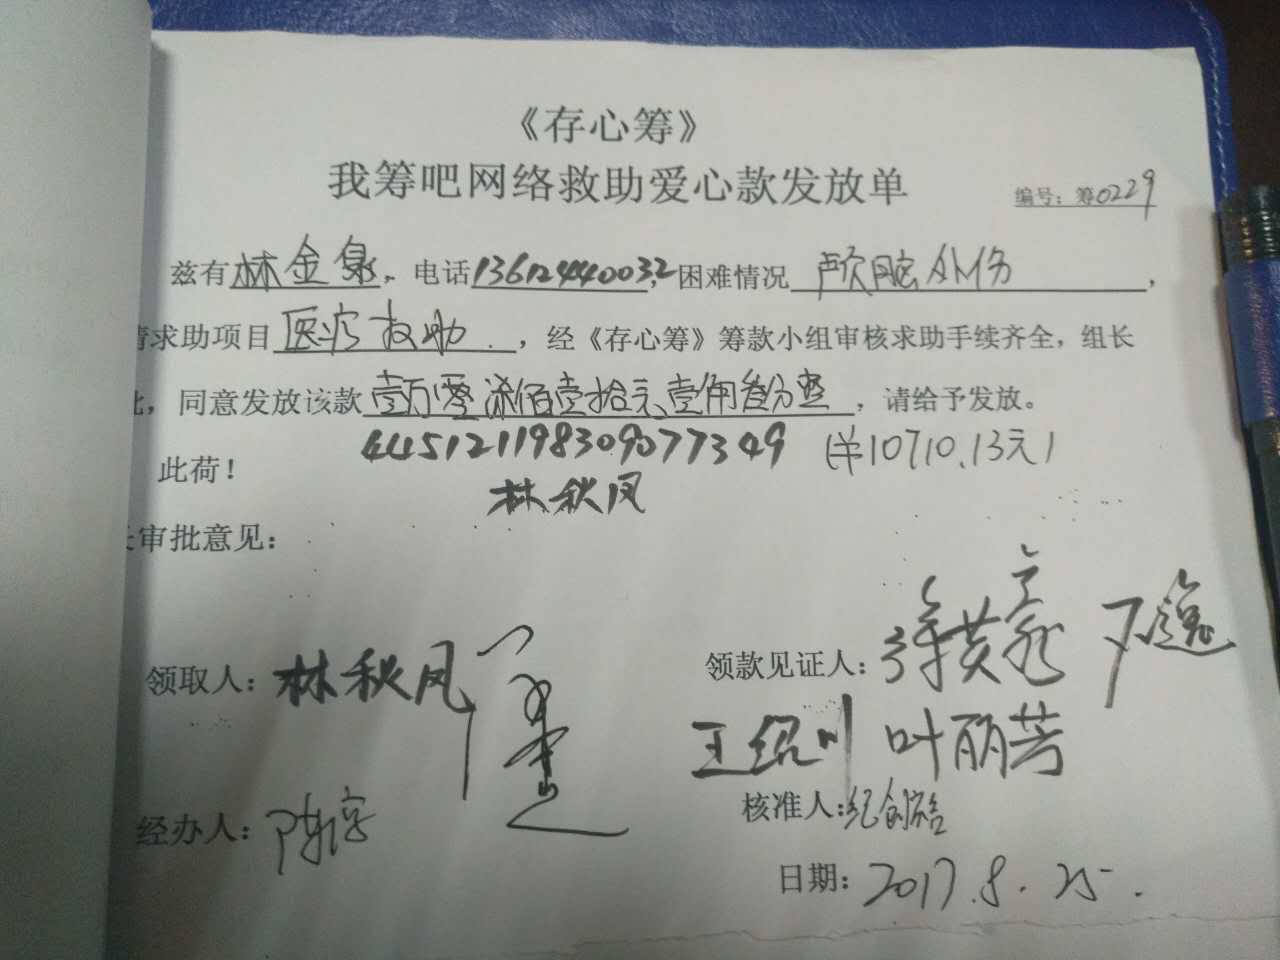 《存心筹》
我筹吧网络救助爱心款发放单
编号：筹0229
兹有林金泉，电话13612440032，困难情况颅脑外伤，
请求助项目医疗救助，经《存心筹》筹款小组审核求助手续齐全，组长
批，同意发放该款壹万零柒佰壹拾元壹角叁分整，请给予发放。
445121198309077349 (￥10710.13元)
此荷！
林秋凤
长审批意见：
领取人：林秋凤
领款见证人：
王绍川 叶丽芳
经办人：陈
核准人：纪
日期：2017.8.25.